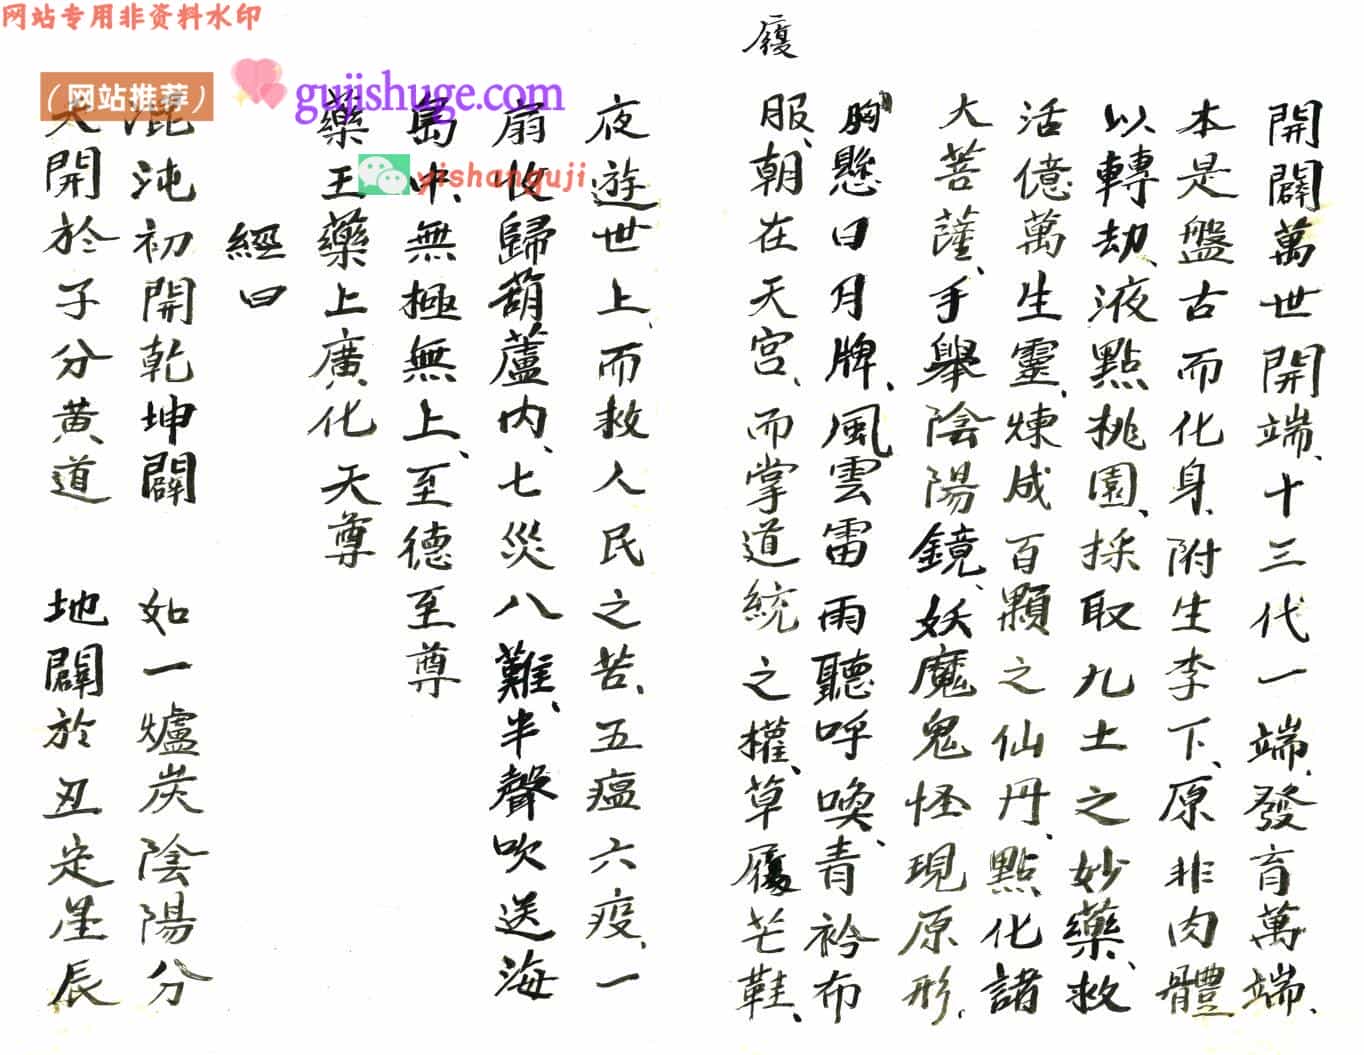 网站专用非资料水印
（网站推荐）
gujishuge.com
yishanguji
履
開闢萬世開端、十三代一端、發育萬端、
本是盤古而化身、附生李下、原非肉體
以轉劫、液點桃園、採取九土之妙藥、救
活億萬生靈、煉成百顆之仙丹、點化諸
大菩薩、手舉陰陽鏡、妖魔鬼怪現原形、
胸懸日月牌、風雲雷雨聽呼喚、青衿布
服、朝在天宮、而掌道統之權、草履芒鞋、
夜遊世上、而救人民之苦、五瘟六疫、一
扇收歸葫蘆內、七災八難、半聲吹送海
島中、無極無上、至德至尊
藥王藥上廣化天尊
經曰
混沌初開乾坤闢 如一爐炭陰陽分
天開於子分黄道 地闢於丑定星辰